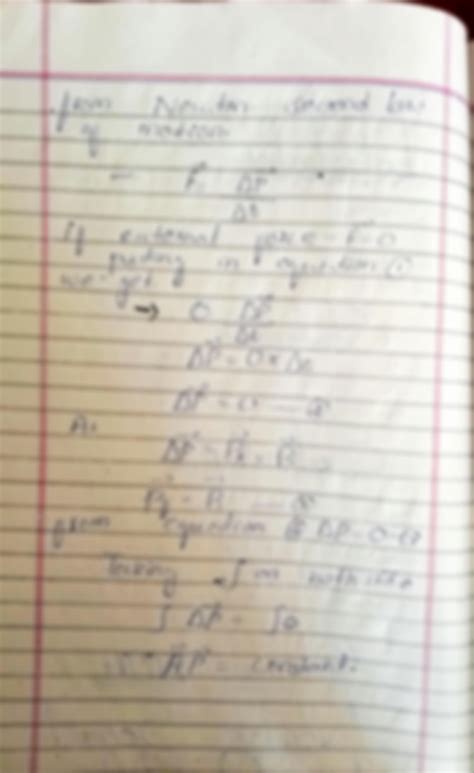 from Newton second law
of motion
F = ΔP
Δt
If external force F = 0
putting in equation ①
we get
→ 0 ΔP
Δt
ΔP = 0 × Δt
ΔP = 0
As
ΔP = P₂ - P₁
P₂ = P₁
from equation ΔP = 0
Taking ∫ on both side
∫ ΔP = ∫0
P = constant